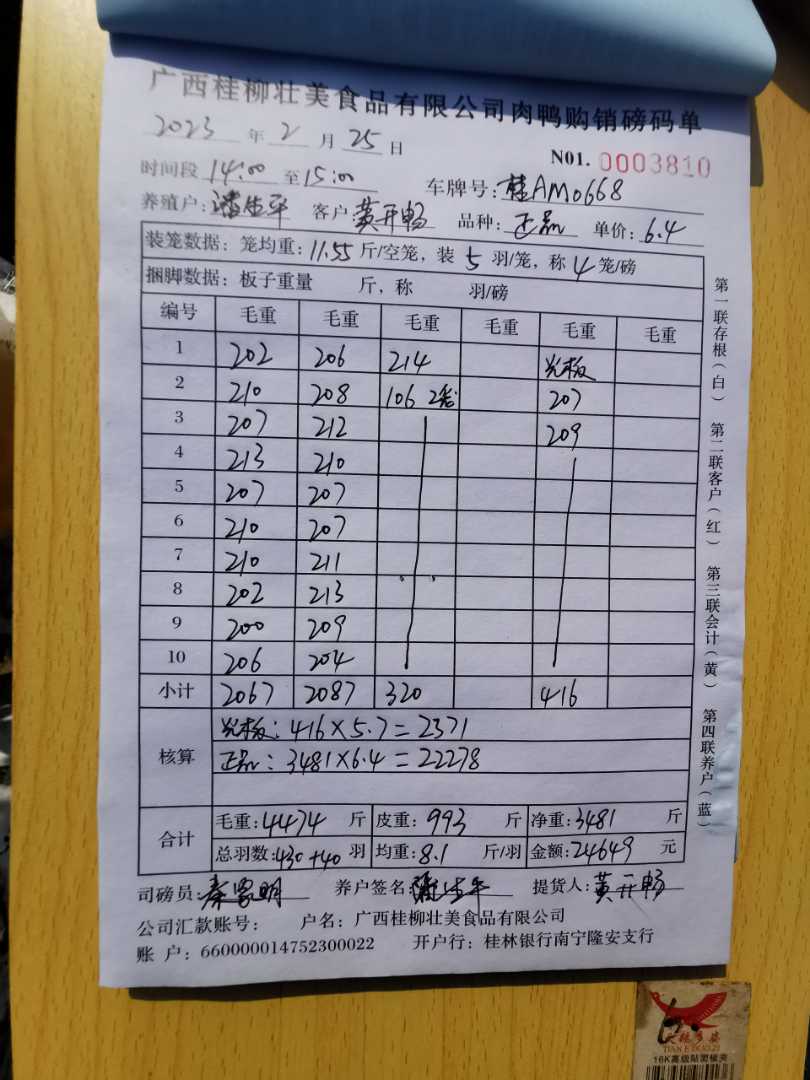 广西桂柳壮美食品有限公司肉鸭购销磅码单
2023 年 2 月 25 日
N01. 0003810
时间段 14:00 至 15:00 车牌号: 桂AM0668
养殖户: 潘生平 客户: 黄开畅 品种: 正品 单价: 6.4
装笼数据: 笼均重: 11.55 斤/空笼, 装 5 羽/笼, 称 4 笼/磅
捆脚数据: 板子重量 斤, 称 羽/磅
编号 毛重 毛重 毛重 毛重 毛重 毛重
1 202 206 214 光板
2 210 208 106 2笼 207
3 207 212 209
4 213 210
5 207 207
6 210 207
7 210 211
8 202 213
9 200 209
10 206 204
小计 2067 2087 320 416
核算
光板: 416×5.7=2371
正品: 3481×6.4=22278
合计
毛重: 4474 斤 皮重: 993 斤 净重: 3481 斤
总羽数: 430+40 羽 均重: 8.1 斤/羽 金额: 24649 元
司磅员: 秦家明 养户签名: 潘生平 提货人: 黄开畅
公司汇款账号: 户名: 广西桂柳壮美食品有限公司
账 户: 660000014752300022 开户行: 桂林银行南宁隆安支行
第一联存根(白) 第二联客户(红) 第三联会计(黄) 第四联养户(蓝)
TIAN E DUOZI
16K高级贴面板夹